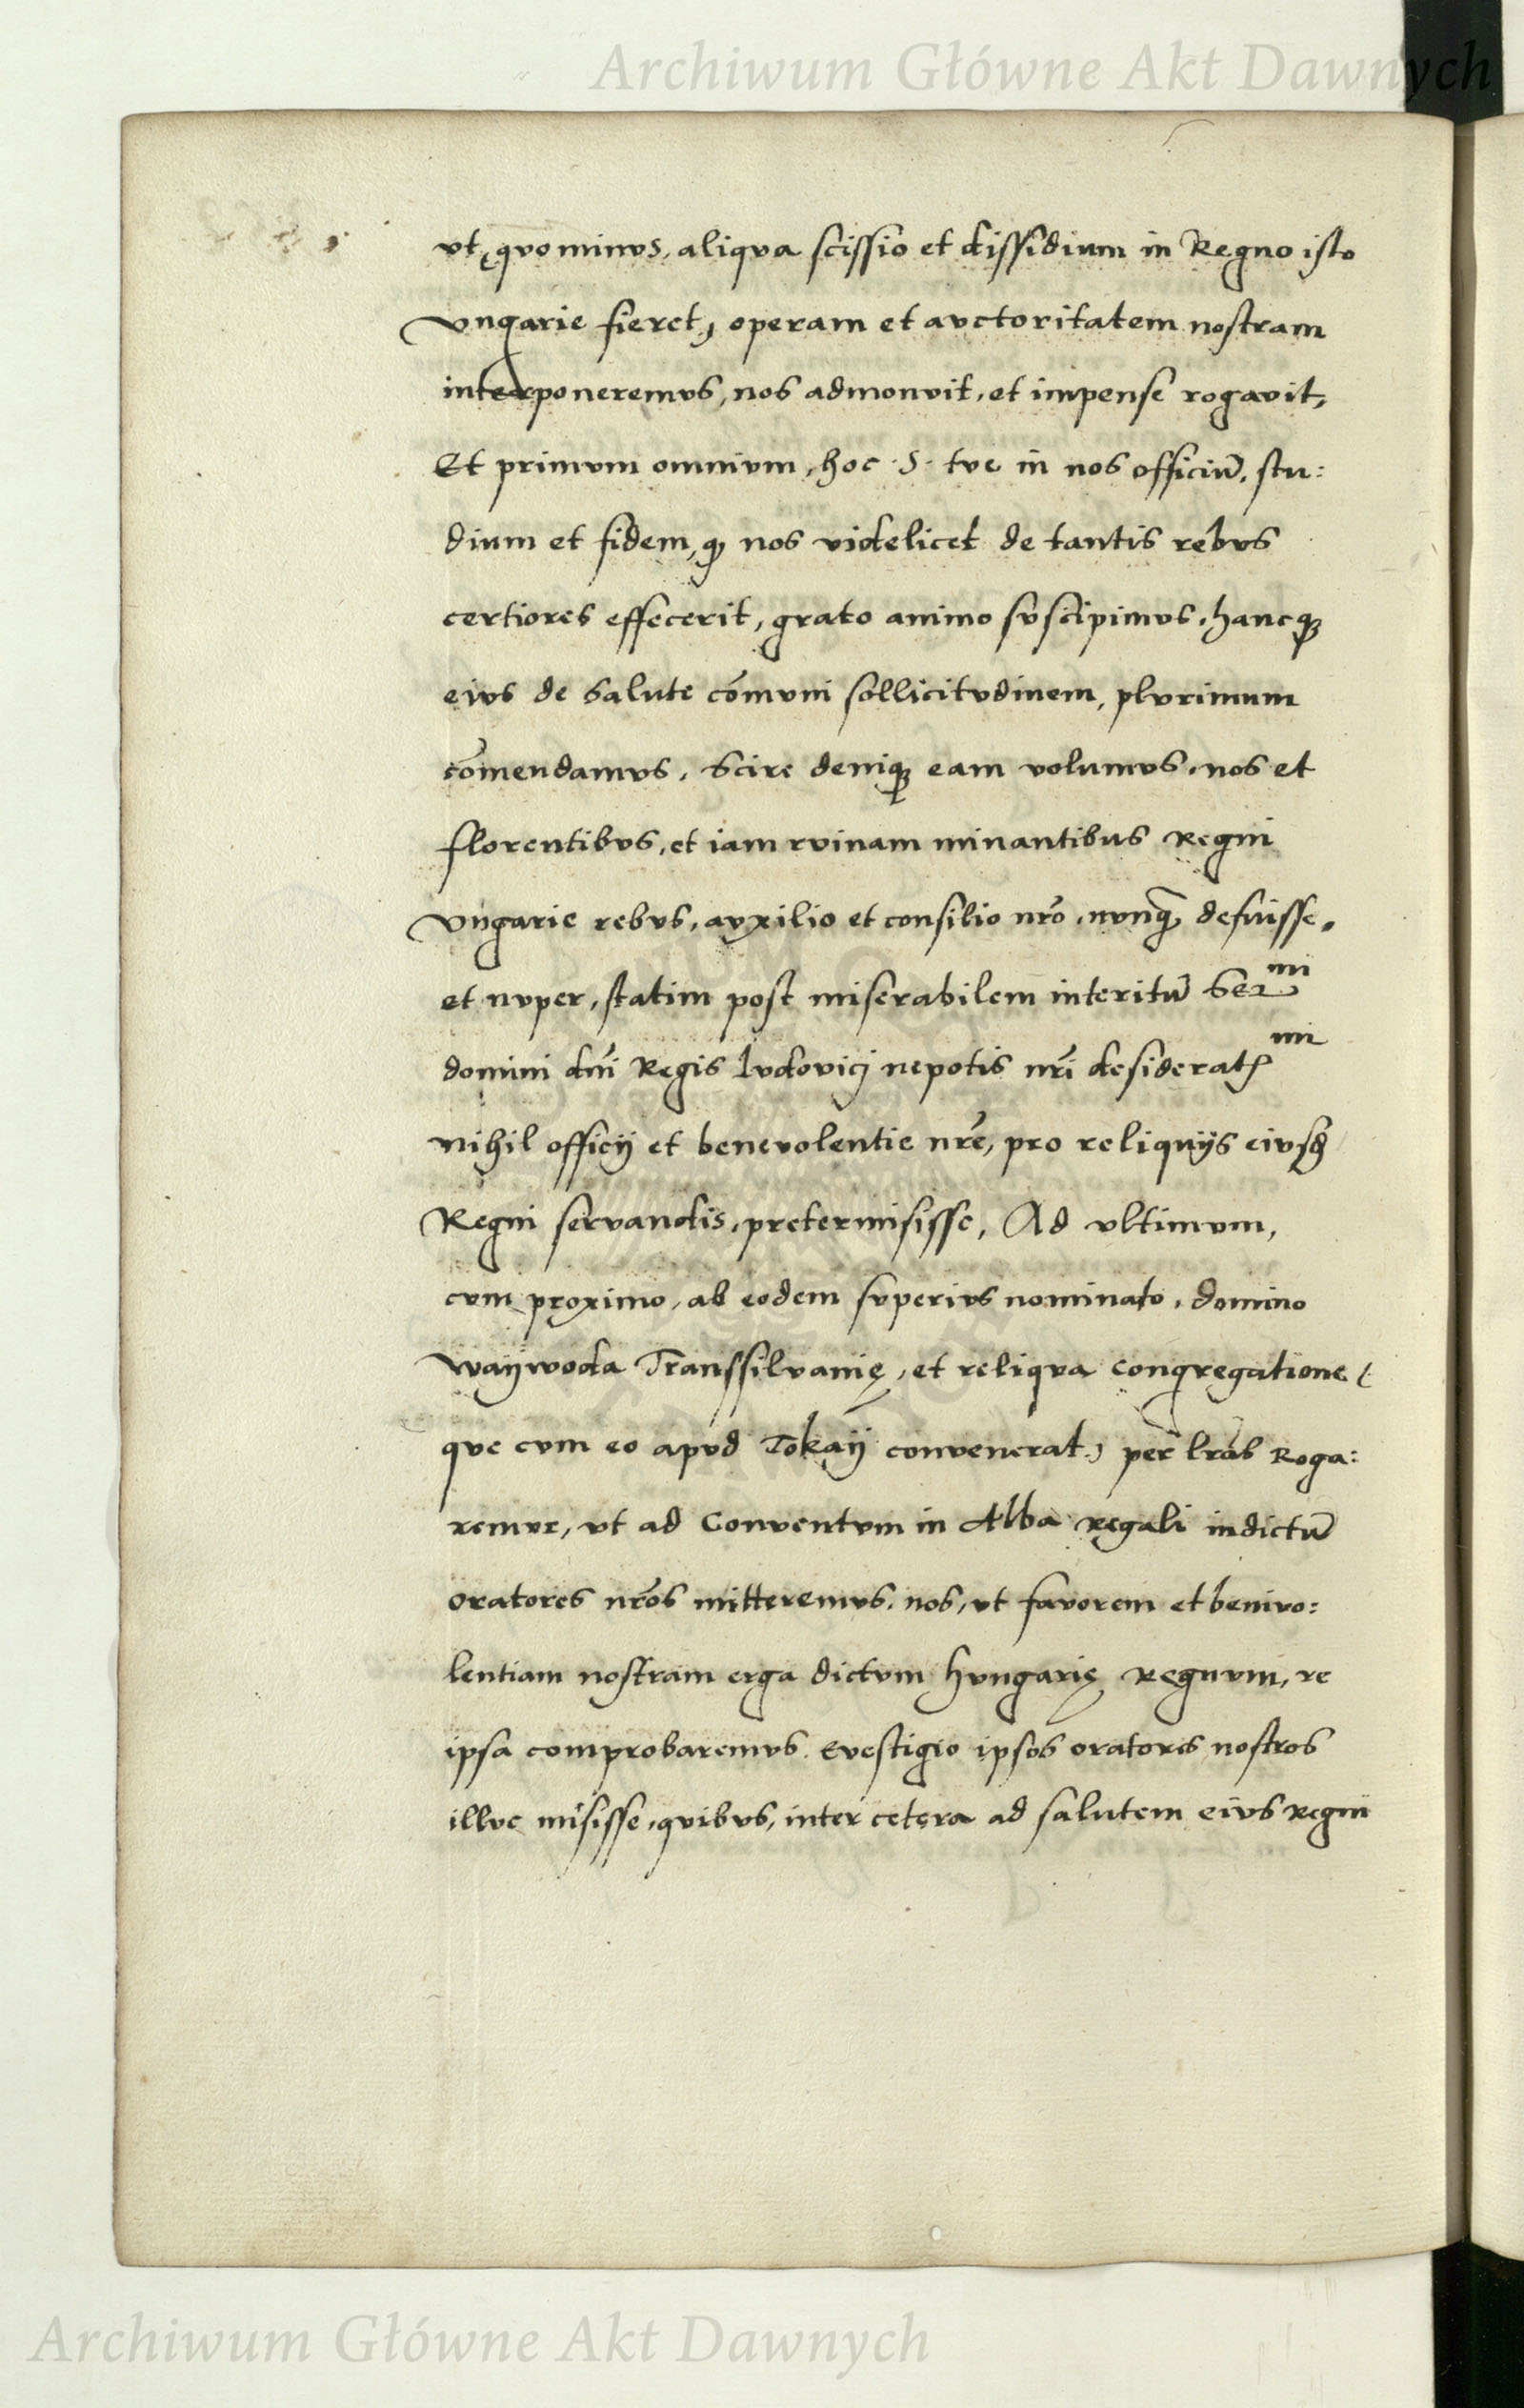 Archiwum Główne Akt Dawnych
vt, quominus, aliqua scissio et dissidium in Regno isto
Vngarie fieret, operam et auctoritatem nostram
interponeremus, nos admonuit, et impense rogauit,
Et primum omnium, hoc .S. tue in nos officiū, stu:
dium et fidem, ꝙ nos videlicet de tantis rebus
certiores effecerit, grato animo suscipimus, hancqꝫ
eius de salute cōmuni sollicitudinem, plurimum
cōmendamus, Scire deniqꝫ eam volumus, nos et
florentibus, et iam ruinam minantibus Regni
Vngarie rebus, auxilio et consilio nrō, nunꝗ̃ defuisse,
et nuper, statim post miserabilem interitū Ser^mi
domini dni Regis Ludouici nepotis nrī desideratᷣ^mi
nihil officij et beneuolentie nrē, pro reliquijs eiusꝺ
Regni seruandis, pretermisisse, Ad vltimum,
cum proximo, ab eodem superius nominato, domino
waÿwoda Transsiluanię, et reliqua congregatione (
que cum eo apud Tokaÿ conuenerat) per lrās Roga:
remur, vt ad Conuentum in Alba regali indictū
oratores nrōs mitteremus, nos, vt fauorem et beniuo:
lentiam nostram erga dictum Hungarię Regnum, re
ipsa comprobaremus. Euestigio ipsos oratores nostros
illuc misisse, quibus, inter cetera ad salutem eius Regni
Archiwum Główne Akt Dawnych